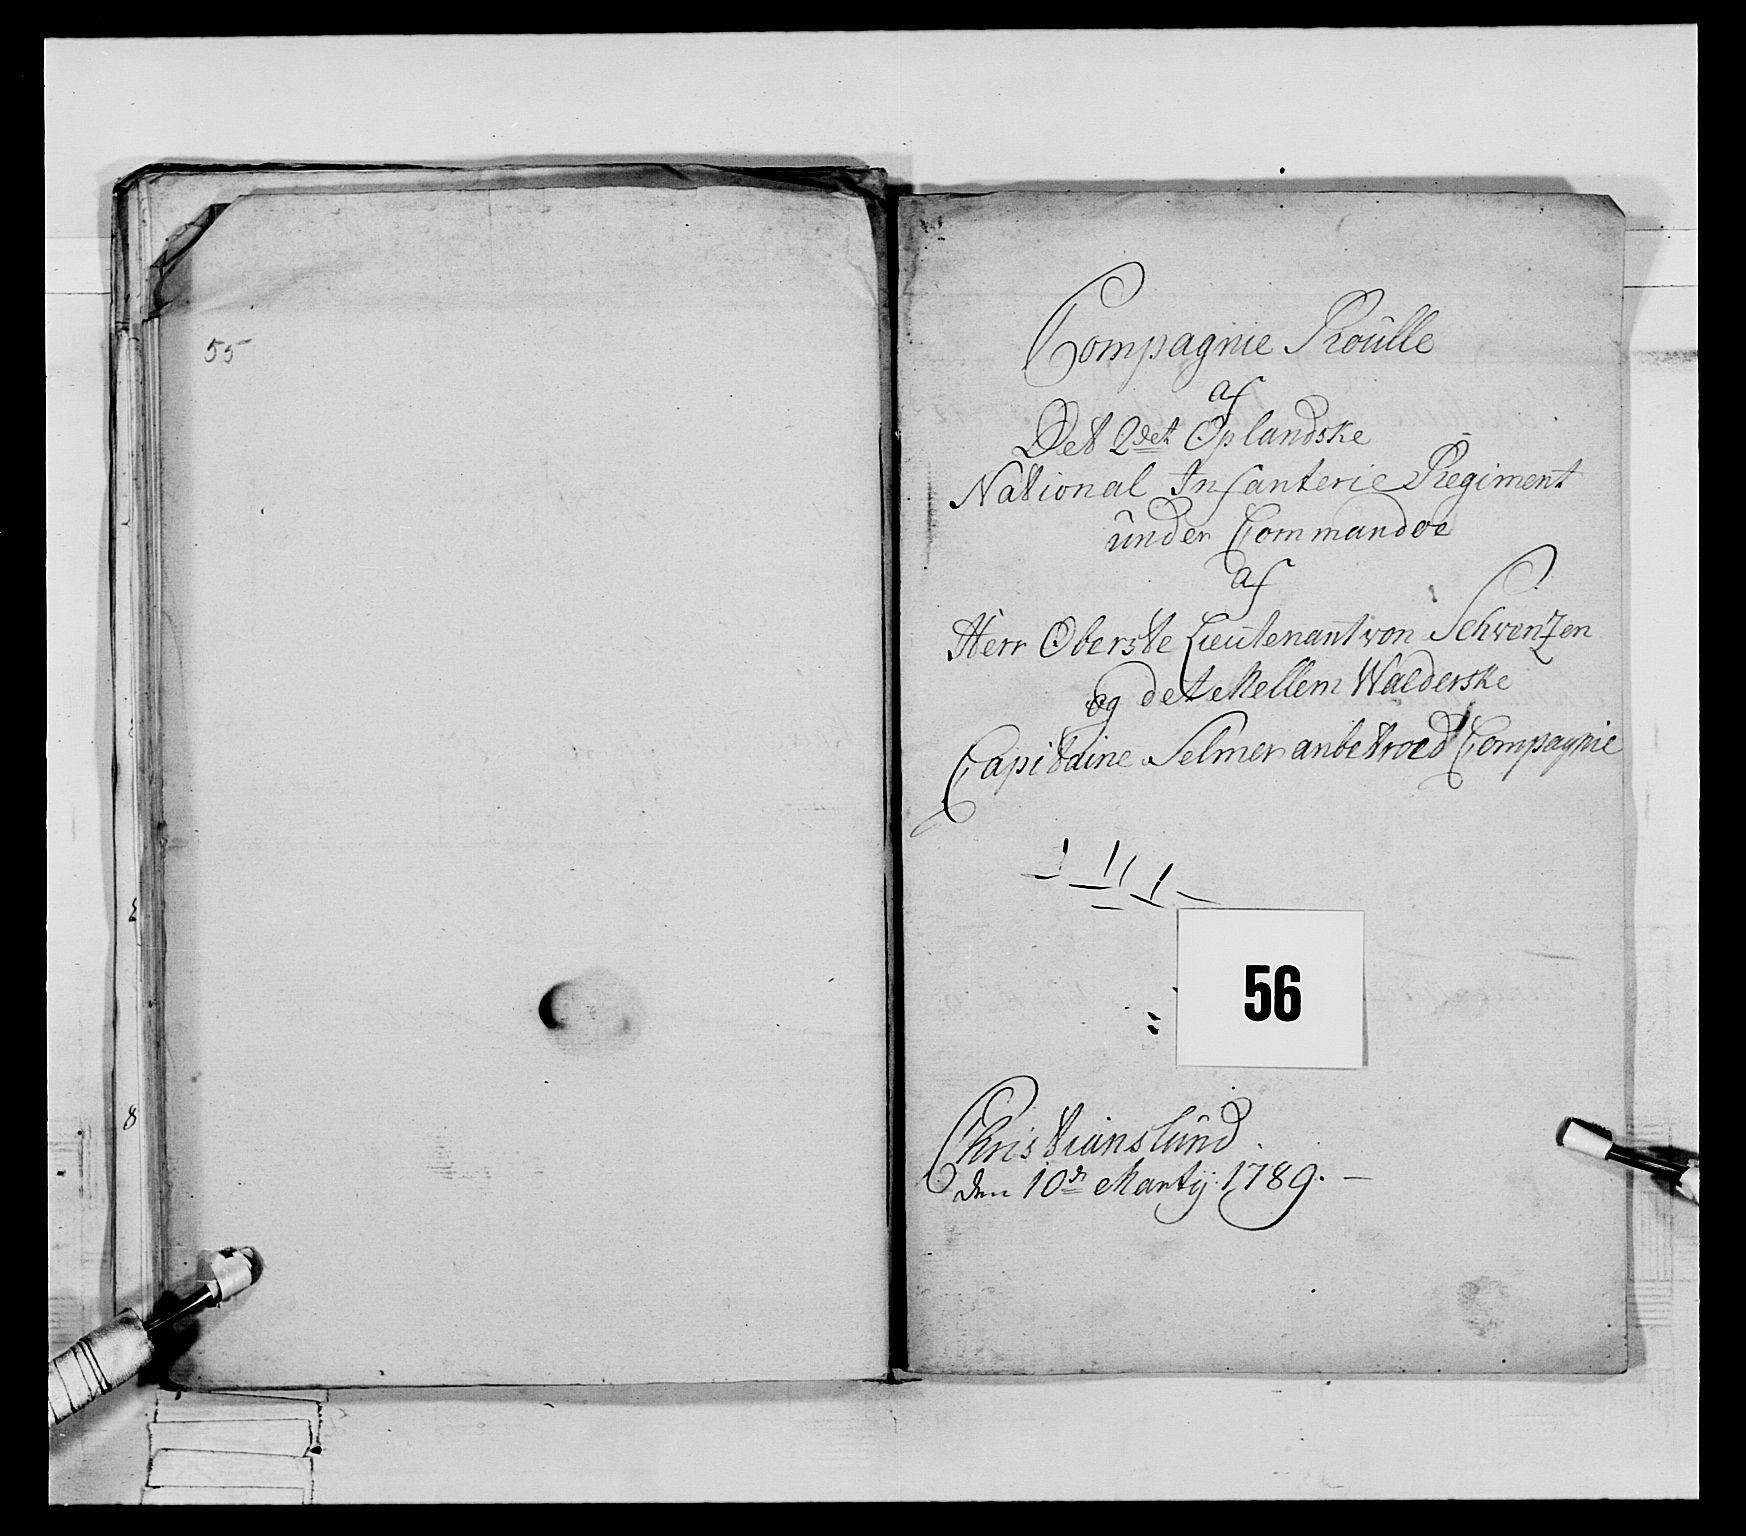 55
Compagnie Roülle
af
Det 2det Oplandske
National Infanterie Regiment
ünder Commandoe
af
Herr Oberste Lieutenant von Schwenzen
og det Mellem Walderske
Capitaine Selmer anbetroed Compagnie
56
Christianslünd
den 10de Martij 1789. —
8